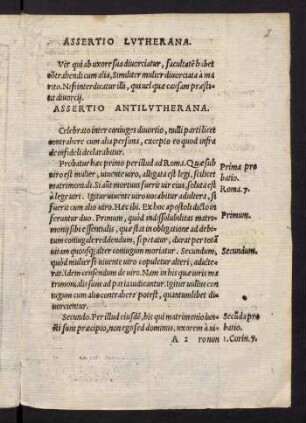 ASSERTIO LVTHERANA.
Vir qui ab uxore sua diuorciatur, facultatē habet
cōtrahendi cum alia, Similiter mulier diuorciata à ma
rito. Nisi interdicatur illis, qui uel quæ causam præsti
tit diuorcij.
ASSERTIO ANTILVTHERANA.
Celebrato inter coniuges diuortio, nulli parti licet
contrahere cum alia persona, excepto eo quod infra
de infideli declarabitur.
Probatur hæc primo per illud ad Roma. Quæ sub
uiro est mulier, uiuente uiro, alligata est legi. scilicet
matrimoniali. Si aūt mortuus fuerit uir eius, soluta est
à lege uiri. Igitur uiuente uiro uocabitur adultera, si
fuerit cum alio uiro. Hæc ibi. Ex hoc apostoli dicto in
feruntur duo. Primum, quod indissolubilitas matri
monij sit ei essentialis, quæ sta in obligatione ad debi-
tum coniugale reddendum, si petatur, durat per totā
uitam quousq; alter coniugum moriatur. Secundum,
quòd mulier si uiuente uiro copuletur alteri, adulte-
ratur. Idem censendum de uiro. Nam in his quæ iuris ma
trimonialis sunt ad paria iudicantur. Igitur uiuente con
iugum cum alio contrahere potest, quantumlibet di
uorcientur.
Secundo. Per illud eiusdē, his qui matrimonio iun-
cti sunt præcipio, non ego sed dominus, uxorem à ui-
A 2 ro non
Prima pro
batio.
Roma. 7.
Primum.
Secundum.
Secūda pro
batio.
1. Corin. 7.